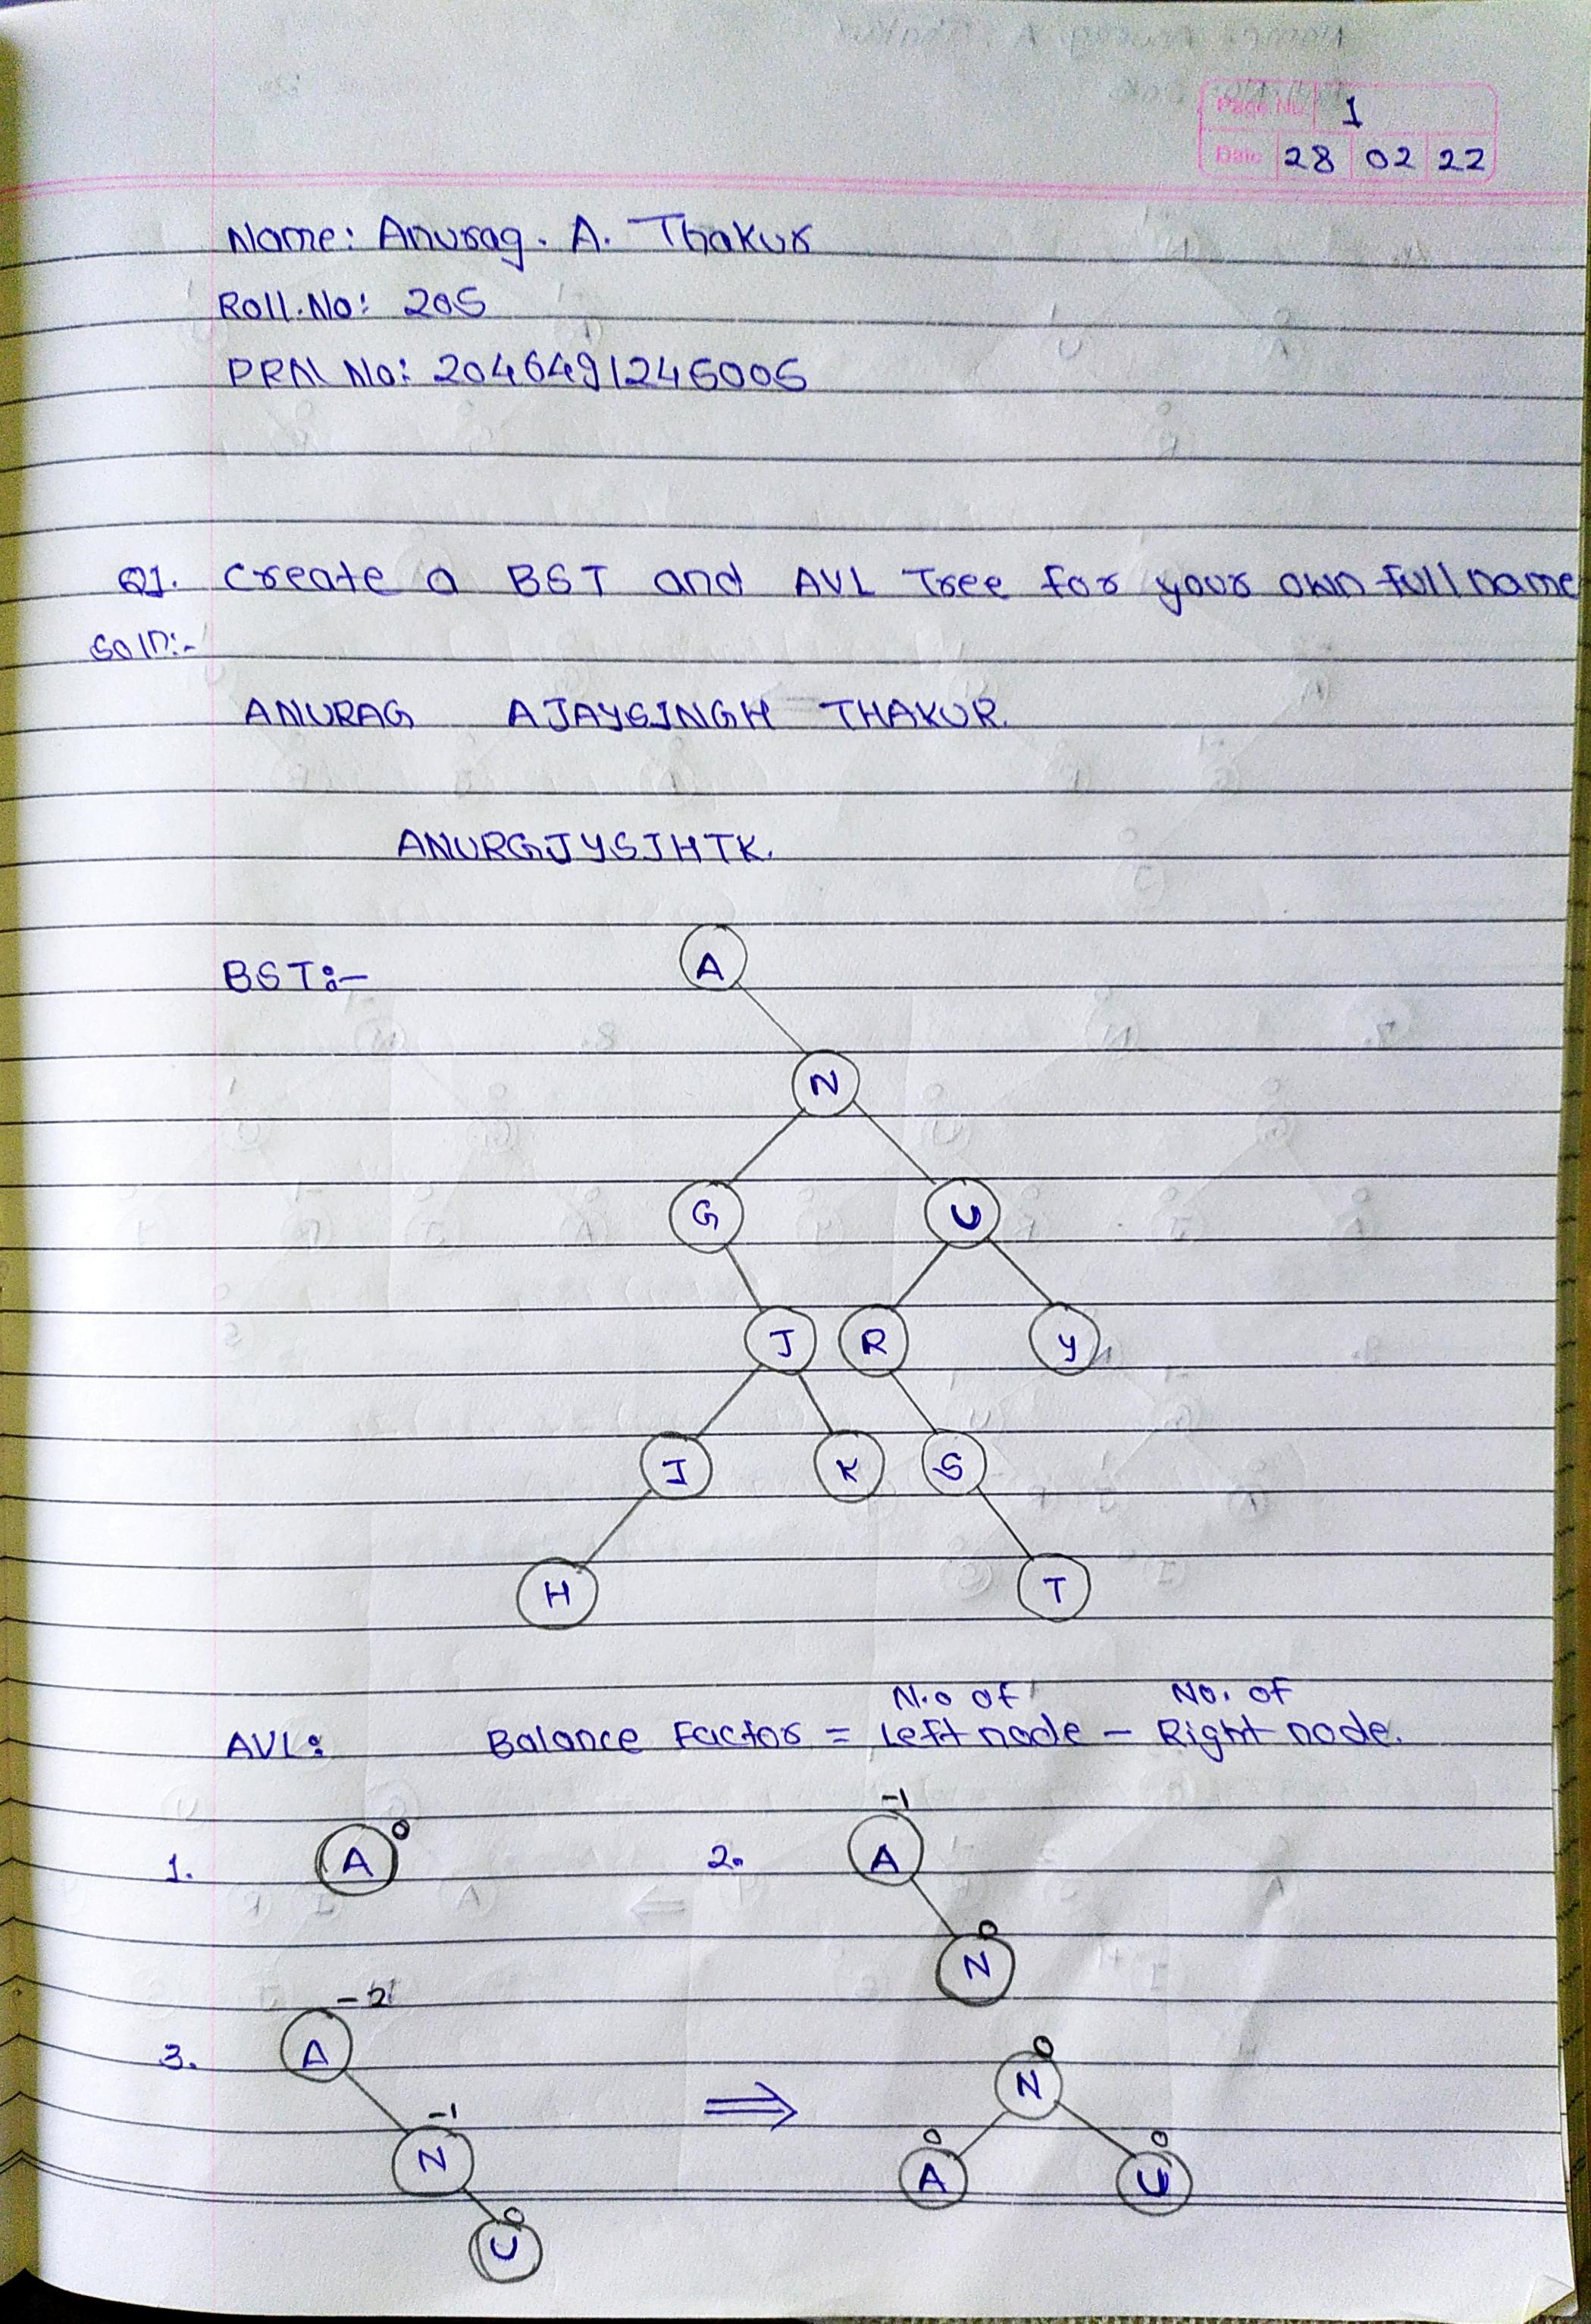 Page No. 1
Date 28 02 22
Name: Anurag. A. Thakur
Roll.No: 205
PRN No: 2046491245005
Q1. Create a BST and AVL Tree for your own full name
Soln:-
ANURAG AJAYSINGH THAKUR.
ANURGJYSIHTK.
BST:-
A
N
G U
J R Y
I K S
H T
No of No. of
AVL: Balance Factor = Left node - Right node.
1. A 0 2. A -1
N 0
3. A -2 N 0
N -1 A 0 U 0
U 0